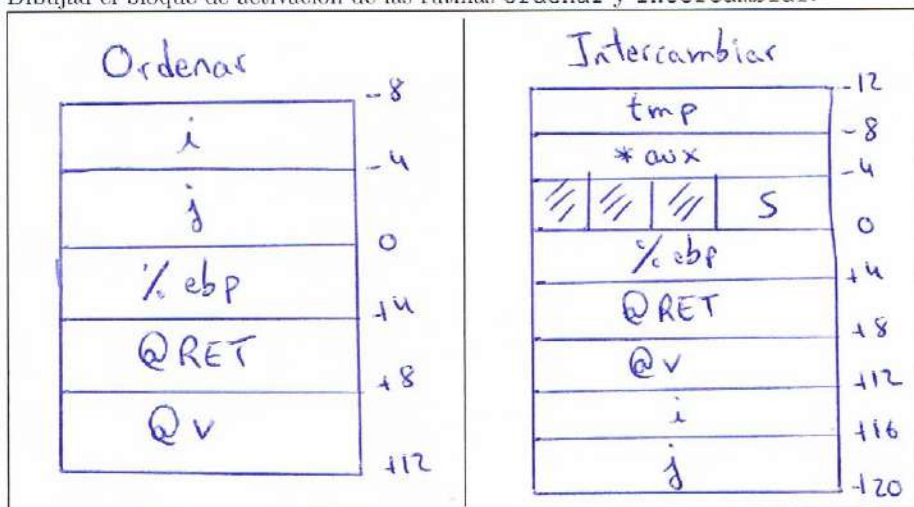 Dibujad el bloque de activación de las rutinas ordenar y intercambiar.
Ordenar
-8
i
-4
j
0
% ebp
+4
@RET
+8
@v
+12
Intercambiar
-12
tmp
-8
* aux
-4
S
0
% ebp
+4
@RET
+8
@v
+12
i
+16
j
+20